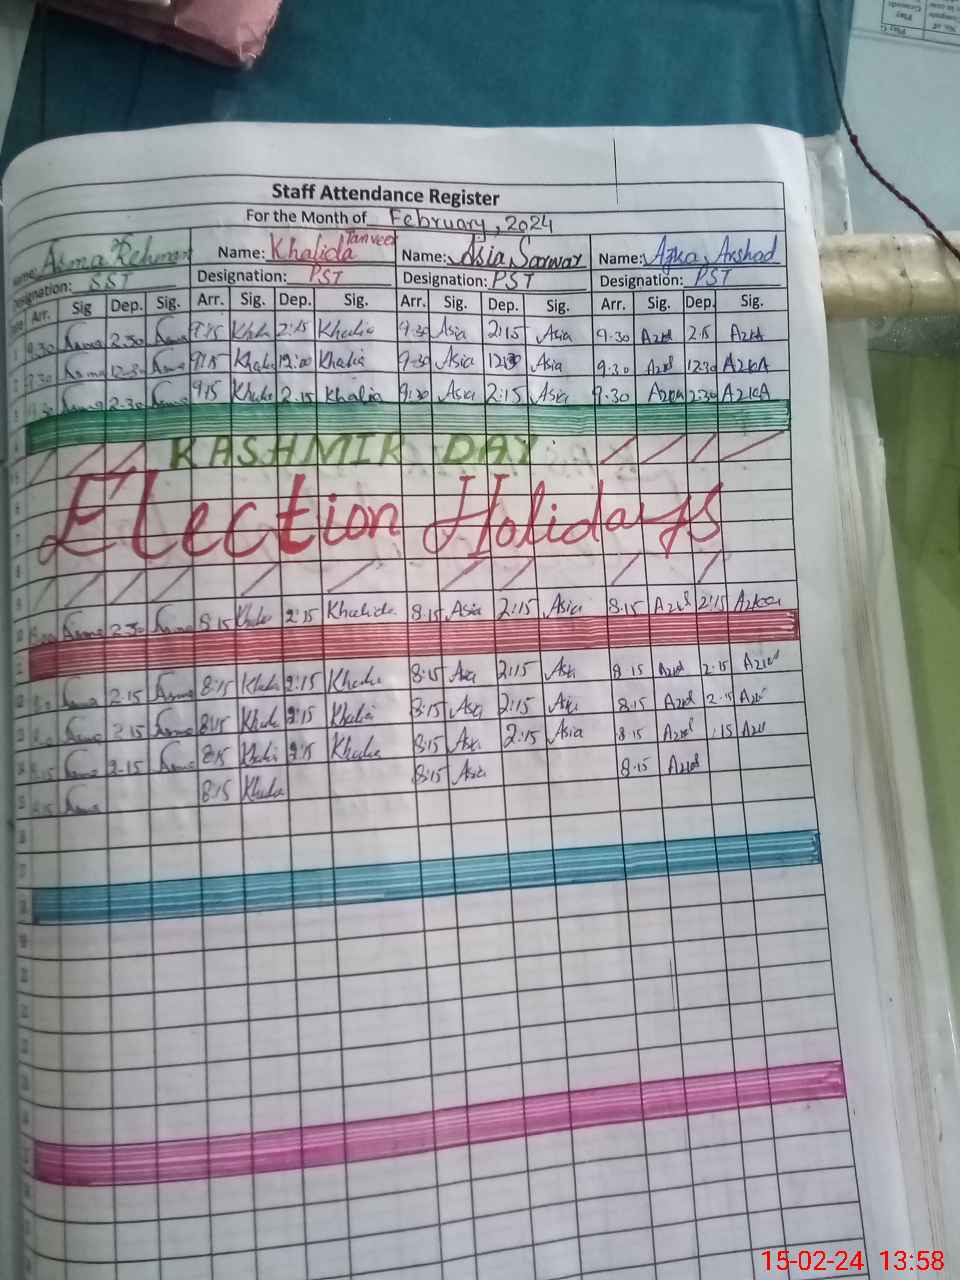 Staff Attendance Register
For the Month of February, 2024
Name: Asma Rehman Name: Khalida Tanveer Name: Asia Sarwar Name: Azka Arshad
Designation: SST Designation: PST Designation: PST Designation: PST
Arr. Sig Dep. Sig. Arr. Sig. Dep. Sig. Arr. Sig. Dep. Sig. Arr. Sig. Dep. Sig.
9.30 Asma 2.30 Asma 9:15 2:15 Khalia 9.30 Asia 2:15 Asia 9.30 2.15 AzkA
9.30 Asma 12.30 Asma 9:15 12:00 Khalia 9.30 Asia 12:30 Asia 9:30 12:30 AzkA
2.30 9:15 2.15 Khalia 9:30 Asia 2:15 Asia 9:30 Azka 2:30 AzkA
KASHMIR DAY
Election Holidays
Asma 2.30 Asma 8:15 2:15 Khalida 8:15 Asia 2:15 Asia 8.15 2:15 Azka
Asma 2.15 Asma 8:15 2:15 8:15 Asia 2:15 Asia 8.15 2.15
Asma 2.15 Asma 8:15 2:15 Khalia 8:15 Asia 2:15 Asia 8.15 2.15
8.15 Asma 2.15 Asma 8:15 2:15 8:15 Asia 2:15 Asia 8.15
8.15 Asma 8:15 8:15 Asia 8.15
15-02-24 13:58